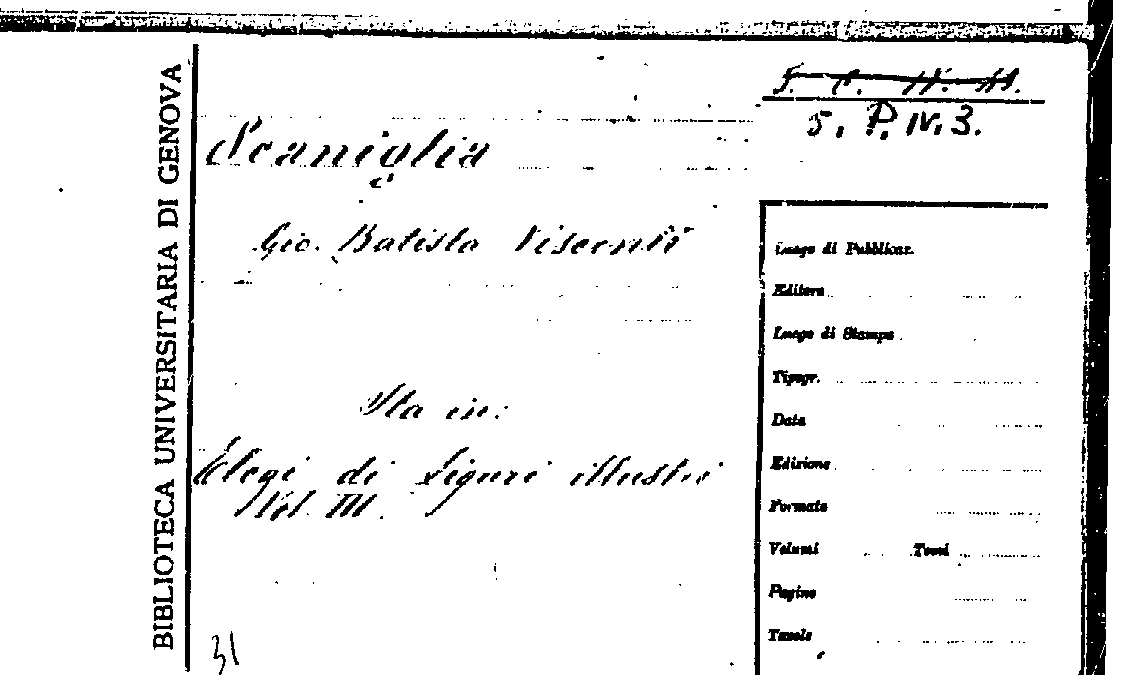 BIBLIOTECA UNIVERSITARIA DI GENOVA
5. P. IV. 3.
Scaniglia
Gio. Batista Visconti
Sta in:
Elogi di Liguri illustri
Vol. III.
31
Luogo di Pubblicaz.
Editore
Luogo di Stampa
Tipogr.
Data
Edizione
Formato
Volumi Tomi
Pagine
Tavole